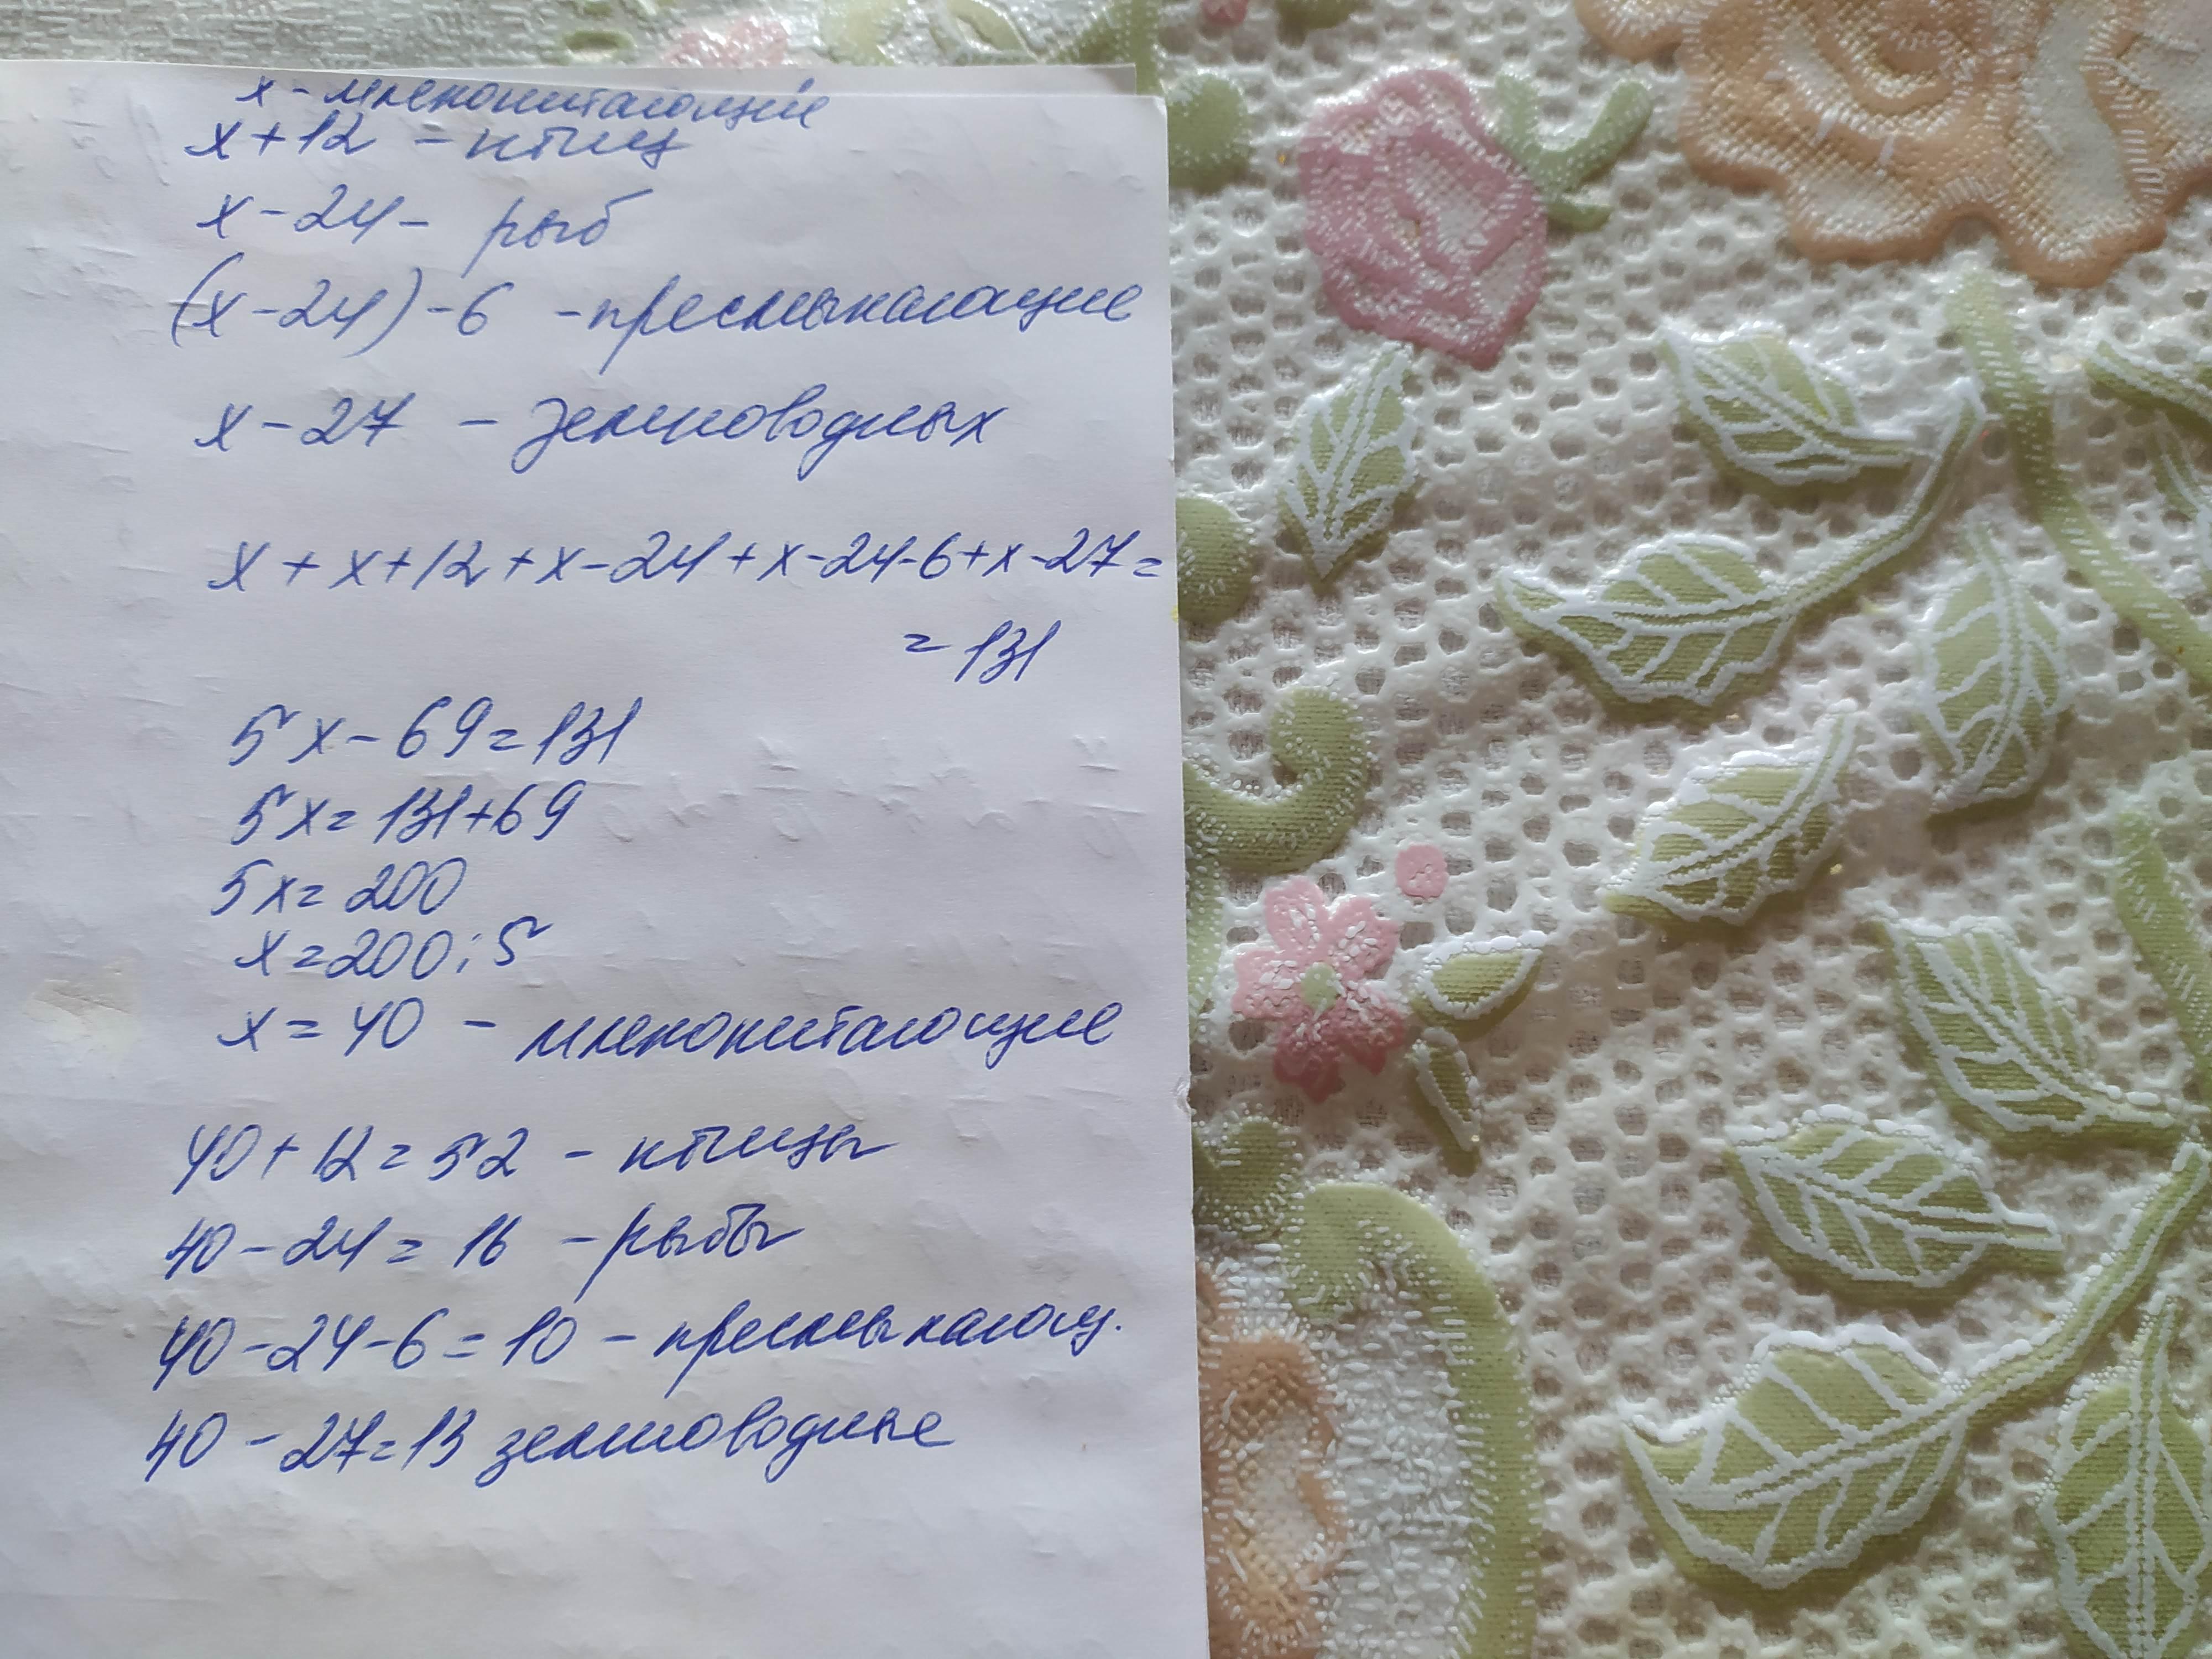 х - млекопитающие
х + 12 - птиц
х - 24 - рыб
(х - 24) - 6 - пресмыкающие
х - 27 - земноводных
х + х + 12 + х - 24 + х - 24 - 6 + х - 27 =
= 131
5х - 69 = 131
5х = 131 + 69
5х = 200
х = 200 : 5
х = 40 - млекопитающие
40 + 12 = 52 - птицы
40 - 24 = 16 - рыбы
40 - 24 - 6 = 10 - пресмыкающ.
40 - 27 = 13 земноводные